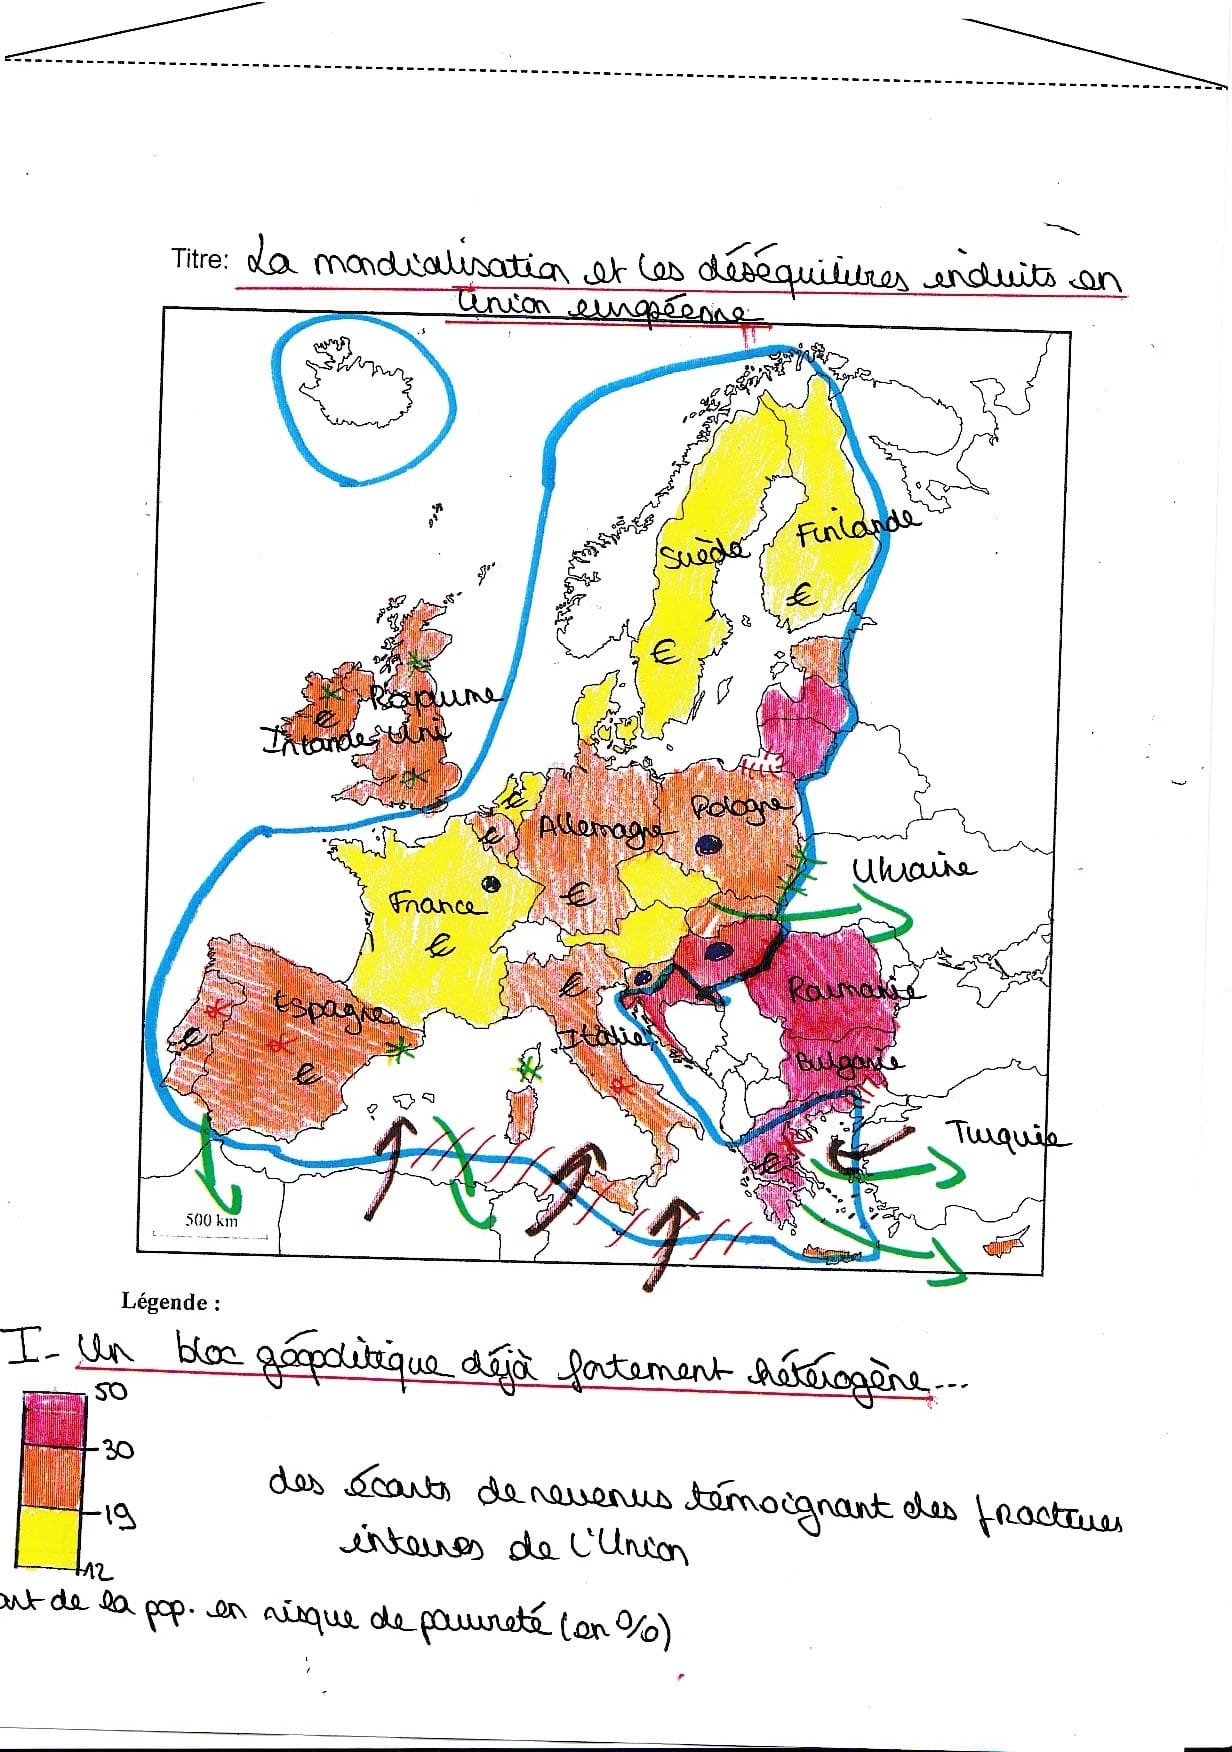 Titre: La mondialisation et les déséquilibres induits en
Union européenne
Suède
Finlande
€
€
Royaume
Irlande Uni
€
€
€
Allemagne
Pologne
Ukraine
France
€
€
Roumanie
Espagne
€
€
€
Italie
Bulgarie
Turquie
€
500 km
Légende :
I- Un bloc géopolitique déjà fortement hétérogène...
50
30
19
12
des écarts de revenus témoignant des fractures
internes de l'Union
art de la pop. en risque de pauvreté (en %)